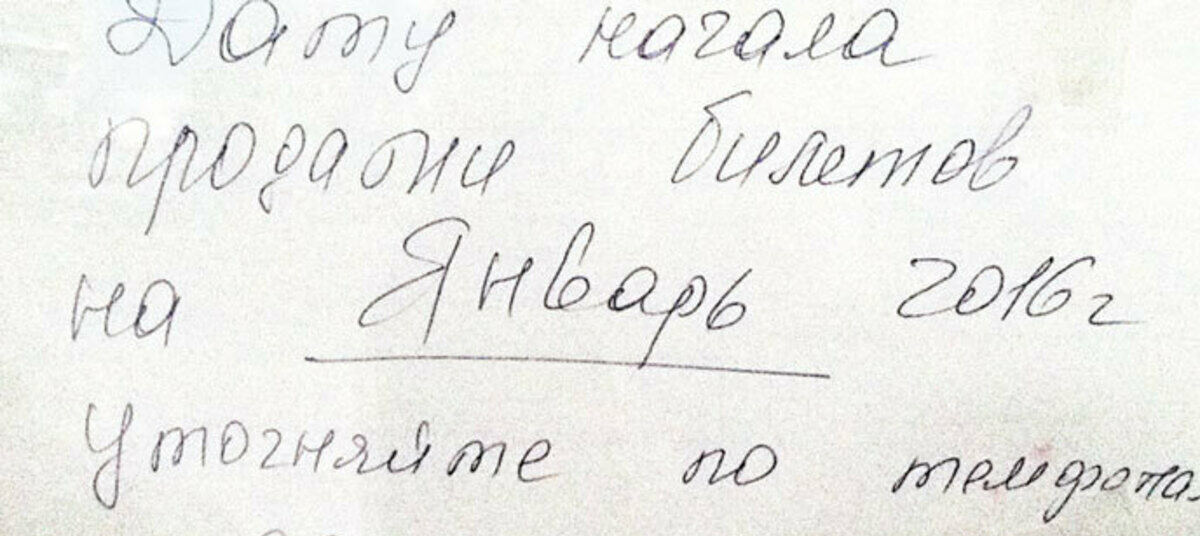 Дату начала
продажи билетов
на Январь 2016г
Уточняйте по телефона